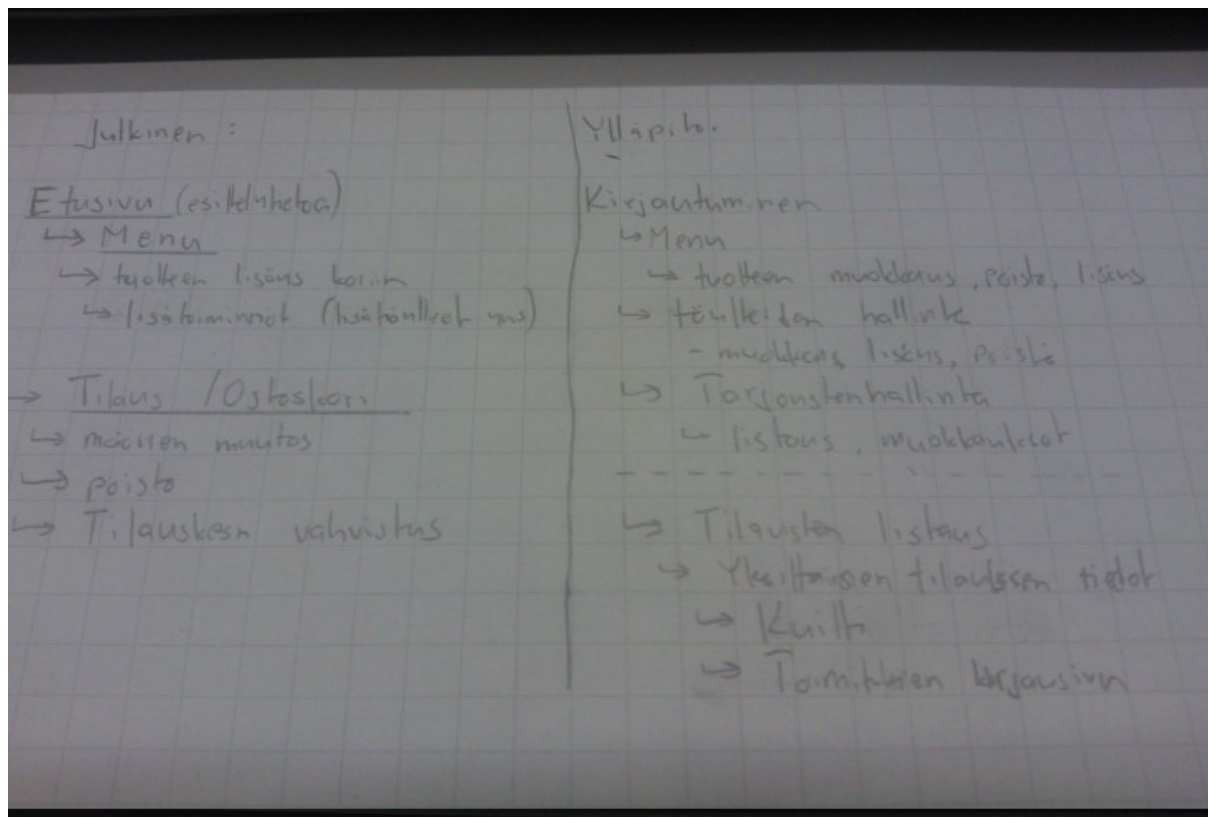 Julkinen :
Etusivu (esittelytietoa)
↳ Menu
↳ tuotteen lisäys koriin
↳ lisätoiminnot (lisätäytteet yms)
→ Tilaus / Ostoskori
↳ määrien muutos
↳ poisto
↳ Tilauksen vahvistus
Ylläpito.
Kirjautuminen
↳ Menu
↳ tuotteen muokkaus, poisto, lisäys
↳ täytteiden hallinta
- muokkaus, lisäys, poisto
↳ Tarjoustenhallinta
↳ listaus, muokkaukset
↳ Tilausten listaus
↳ Yksittäisen tilauksen tiedot
↳ Kuitti